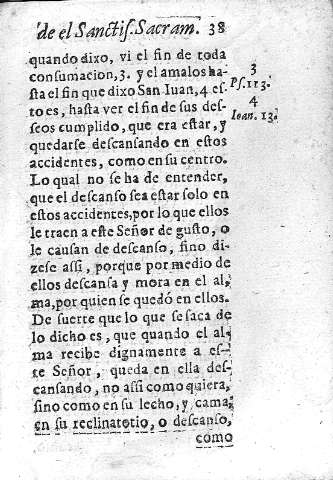 de el Sanctiſ. Sacram. 38
quando dixo, vi el fin de toda
conſumacion, 3. y el amalos ha-
ſta el fin que dixo San Iuan, 4 eſ-
to es, haſta ver el fin de sus deſ-
ſeos cumplido, que era eſtar, y
quedarſe deſcanſando en eſtos
accidentes, como en ſu centro.
Lo qual no ſe ha de entender,
que el deſcanſo ſea eſtar ſolo en
eſtos accidentes, por lo que ellos
le traen a eſte Señor de guſto, o
le cauſan de deſcanſo, ſino di-
zeſe aſsi, porque por medio de
ellos deſcanſa y mora en el al,
ma, por quien ſe quedó en ellos.
De ſuerte que lo que ſe ſaca de
lo dicho es, que quando el al-
ma recibe dignamente a eſ-
te Señor, queda en ella deſ-
canſando, no aſsi como quiera,
ſino como en ſu lecho, y cama,
en ſu reclinatotio, o deſcanſo,
como
3
Pſ. 113.
4
Ioan. 13.